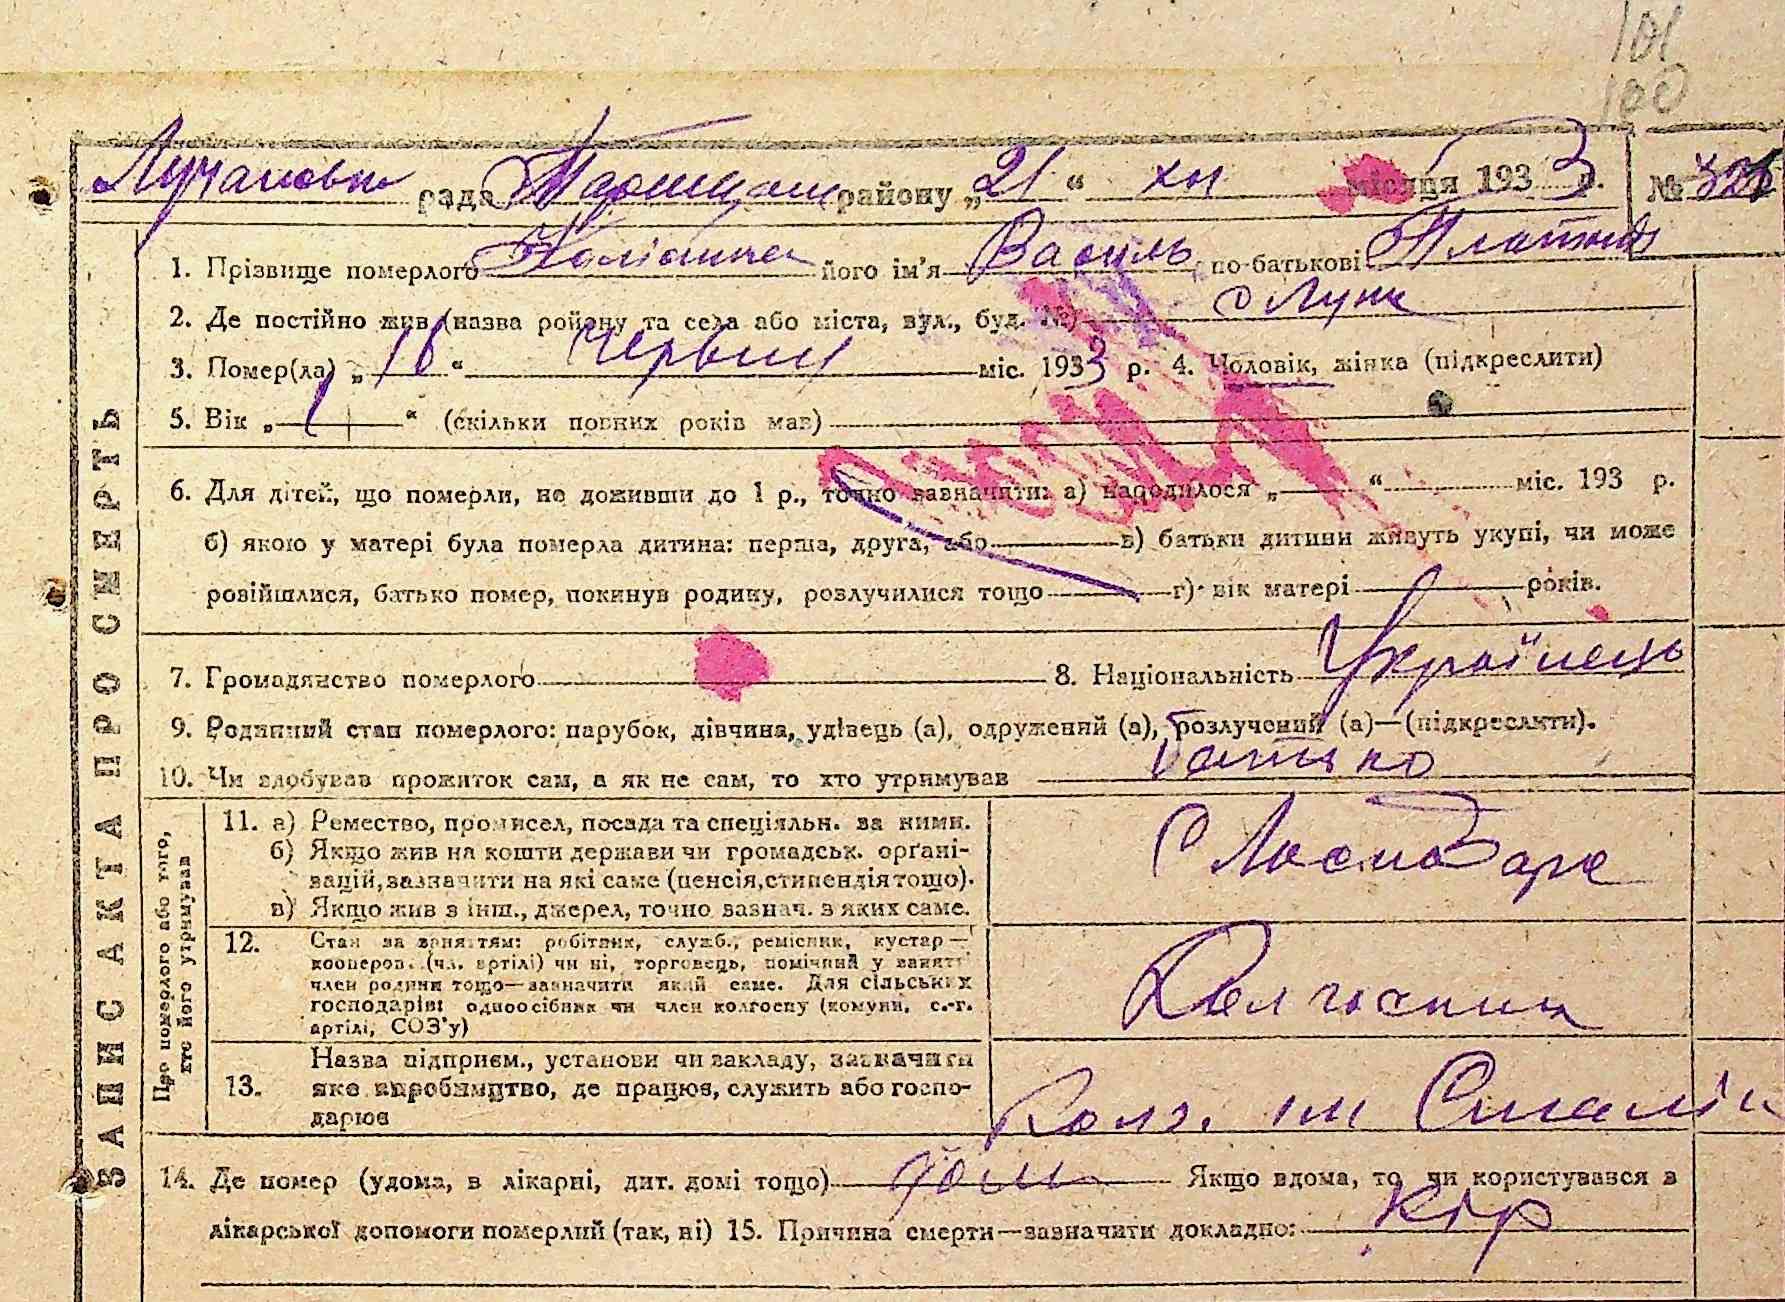 101
100
рада району „21“ XII місяця 1933 р. №
1. Прізвище померлого його ім'я Василь по-батькові
2. Де постійно жив (назва ройону та села або міста, вул., буд. №)
3. Помер(ла) „16“ червня міс. 1933 р. 4. Чоловік, жінка (підкреслити)
5. Вік „1“ (скільки повних років мав)
6. Для дітей, що померли, не доживши до 1 р., точно зазначити: а) народилося „ “ міс. 193 р.
б) якою у матері була померла дитина: перша, друга, або в) батьки дитини живуть укупі, чи може
розійшлися, батько помер, покинув родину, розлучилися тощо г) вік матері років.
7. Громадянство померлого 8. Національність Українець
9. Родинний стан померлого: парубок, дівчина, удівець (а), одружений (а), розлучений (а)—(підкреслити).
10. Чи здобував прожиток сам, а як не сам, то хто утримував батько
ЗАПИС АКТА ПРО СМЕРТЬ
Про померлого або того,
хто його утримував
11. а) Ремество, промисел, посада та спеціяльн. за ними.
б) Якщо жив на кошти держави чи громадськ. органі-
зацій, зазначити на які саме (пенсія, стипендія тощо).
в) Якщо жив з інш., джерел, точно зазнач. з яких саме.
12. Стан за заняттям: робітник, служб., ремісник, кустар—
кооперов. (чл. артілі) чи ні, торговець, помічний у занятті
член родини тощо—зазначити який саме. Для сільських
господарів: одноосібник чи член колгоспу (комуни, с.-г.
артілі, СОЗ'у)
Колгоспник
13. Назва підприєм., установи чи закладу, зазначити
яке виробництво, де працює, служить або госпо-
дарює
Колг. ім Сталін
14. Де помер (удома, в лікарні, дит. домі тощо) дома Якщо вдома, то чи користувався з
лікарської допомоги померлий (так, ні) 15. Причина смерти—зазначити докладно: Кір